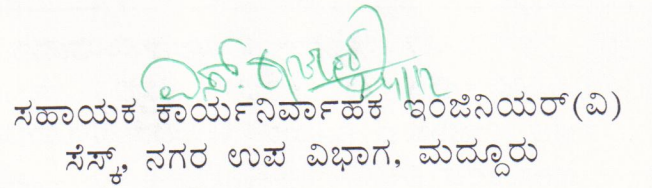 ಸಹಾಯಕ ಕಾರ್ಯನಿರ್ವಾಹಕ ಇಂಜಿನಿಯರ್(ವಿ)
ಸೆಸ್ಕ್, ನಗರ ಉಪ ವಿಭಾಗ, ಮದ್ದೂರು